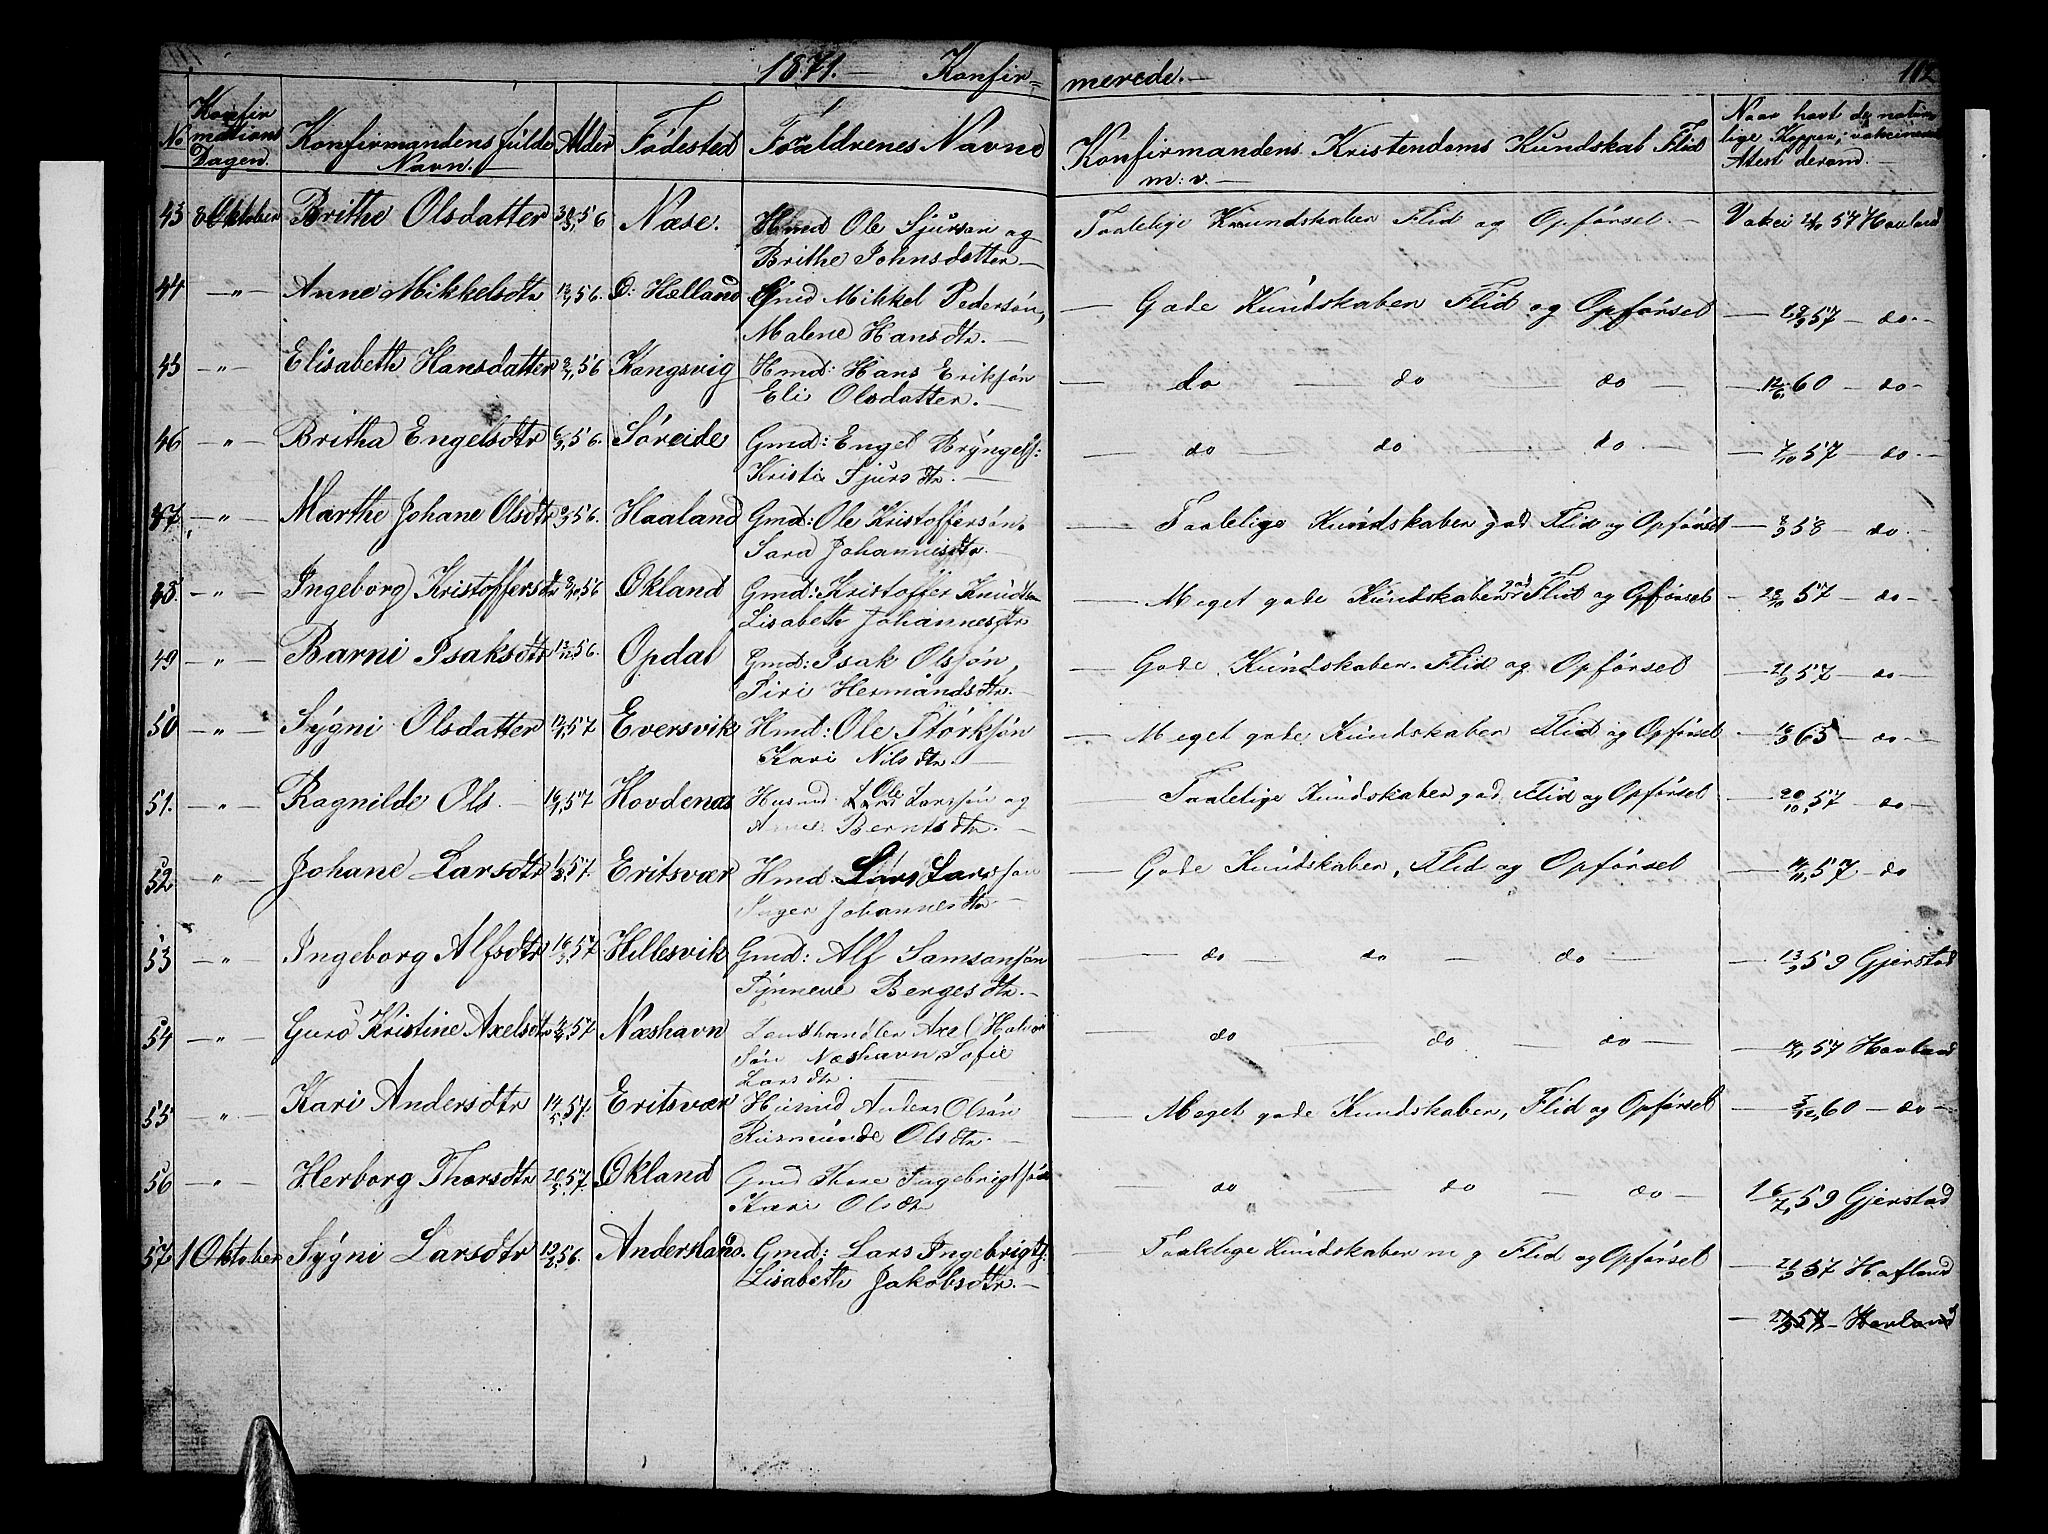 1871. — Konfir=
merede. —
112
No
Konfir
mations
Dagen.
Konfirmandens fulde
Navn. —
Alder
Fødested
Foraldrenes Navne
Konfirmandens Kristendoms Kundskab Flid
m: v. —
Naar havt de natur
lige Kopper,
Atest derom. —
43 8 Oktober Brithe Olsdatter 56 Næse. Hmd Ole Sjurson og
Brithe Johnsdatter —
Taalelige Kundskaber Flid og Opførsel. — Vakci 57 Havland
44 — " — Anne Mikkelsdtr 56. Ø: Hælland Gmd Mikkel Pedersøn,
Malene Hansdtr. —
— Gode Kundskaber Flid og Opførsel — 57 — do —
45 — " — Elisabeth Hansdatter 56 Kongsvig Hmd: Hans Eriksøn
Eli Olsdatter. —
— do — do — do — — 12/6 60 — do —
46 — " — Britha Engelsdtr 56. Søreide Gmd: Engel Bryngels:
Kristi Sjursdtr. —
— do do — do — 7/10 57 — do —
47 — " — Marthe Johane Olsdtr 56. Haaland Gmd: Ole Kristoffersøn,
Sara Johannisdtr. —
— Taalelige Kundskaber god Flid og Opførsel — 58 — do —
— " — Ingeborg Kristoffersdtr 56 Økland Gmd: Kristoffer Knudsøn
Lisabeth Johannesdtr
— Meget gode Kundskaber god Flid og Opførsel — 28/10 57 — do —
49 — " — Barni Isaksdtr 56. Opdal Gmd: Isak Olssøn,
Siri Hermandsdtr. —
— Gode Kundskaber. Flid og Opførsel — 57 — do —
50 — " — Sygni Olsdatter 57 Eversvik Hmd: Ole Størksøn
Kari Nilsdtr. —
— Meget gode Kundskaber Flid og Opførsel — 63 — do —
51. — " — Ragnilde Ols. — 57 Hovdenæs Husmd. Ole Larssøn og
Berntsdtr. —
Taalelige Kundskaber god Flid og Opførsel — 20/10 57 — do —
52 — " — Johane Larsdtr 57. Eritsvær Hmd. Lars Larssøn
Inger Johannesdtr. —
— Gode Kundskaber, Flid og Opførsel — 57 — do
53 — " — Ingeborg Alfsdtr 57. Hillesvik Gmd: Alf Samsonsøn
Synneve Bergesdtr. —
— do do — do — — 59 Gjerstad
54 — " — Guro Kristine Axelsdtr 57. Næshavn Axel Halvor
søn Næshavn Sofie
Larsdtr. —
— do — do — do — — 57 Havland
55 — " — Kari Andersdtr 57. Eritsvær Husmd Anders Olsøn
Olsdtr. —
— Meget gode Kundskaber, Flid og Opførsel — 60 — do —
56 — " — Herborg Thorsdtr 57. Økland Gmd Thore Ingebrigtsøn
Kari Olsdtr
— do — do — do — 59 Gjerstad
57 1 Oktober Sygni Larsdtr 56. Gmd: Lars Ingebrigts.
Lisabeth Jakobsdtr. —
— Taalelige Kundskaber m g Flid og Opførsel — 57 Hafland
— 57 — Havland